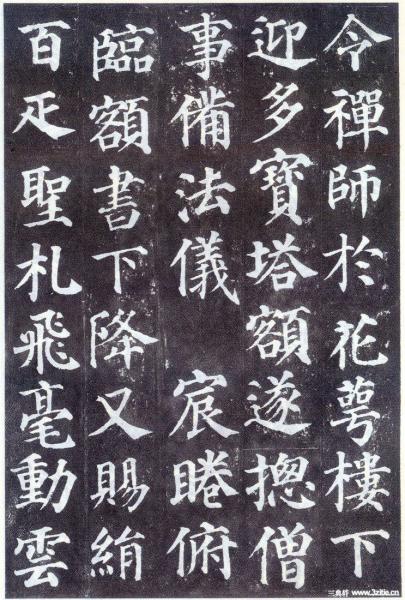 令禪師於花萼樓下
迎多寶塔額遂揔僧
事備法儀　宸睠俯
臨額書下降又賜絹
百疋聖札飛毫動雲
三典轩 www.3zitie.cn